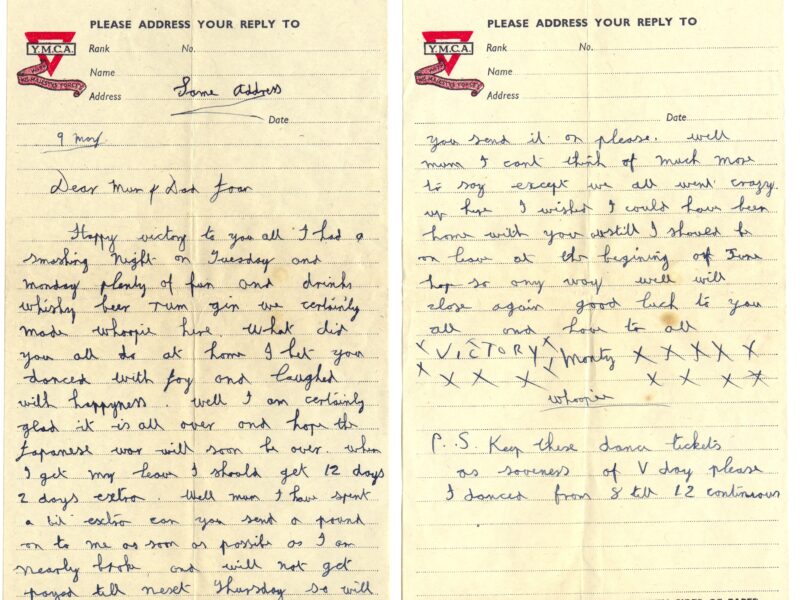 PLEASE ADDRESS YOUR REPLY TO
Y.M.C.A.
WITH
HIS MAJESTY'S FORCES
Rank No.
Name
Address Same Address
Date
9 May
Dear Mum & Dad Joan
Happy victory to you all I had a
smashing Night on Tuesday and
monday plenty of fun and drinks
whisky beer rum gin we certainly
made whoopie here. What did
you all do at home I bet you
danced with joy and laughed
with happyness. Well I am certainly
glad it is all over and hope the
Japanese war will soon be over. when
I get my leave I should get 12 days
2 days extra. Well mum I have spent
a bit extra can you send a pound
on to me as soon as possible as I am
nearly broke and will not get
payed till next Thursday so will
PLEASE ADDRESS YOUR REPLY TO
Y.M.C.A.
WITH
HIS MAJESTY'S FORCES
Rank No.
Name
Address
Date
you send it on please. well
mum I cant think of much more
to say except we all went crazy
up here I wished I could have been
home with you all still I should be
on leave at the begining of June
hop so any way well will
close again good luck to you
all and love to all
x VICTORY x Monty x x x x x
x x x x x x x
whoopie
P.S. Keep these dance tickets
as soveness of V day please
I danced from 8 till 12 continuous